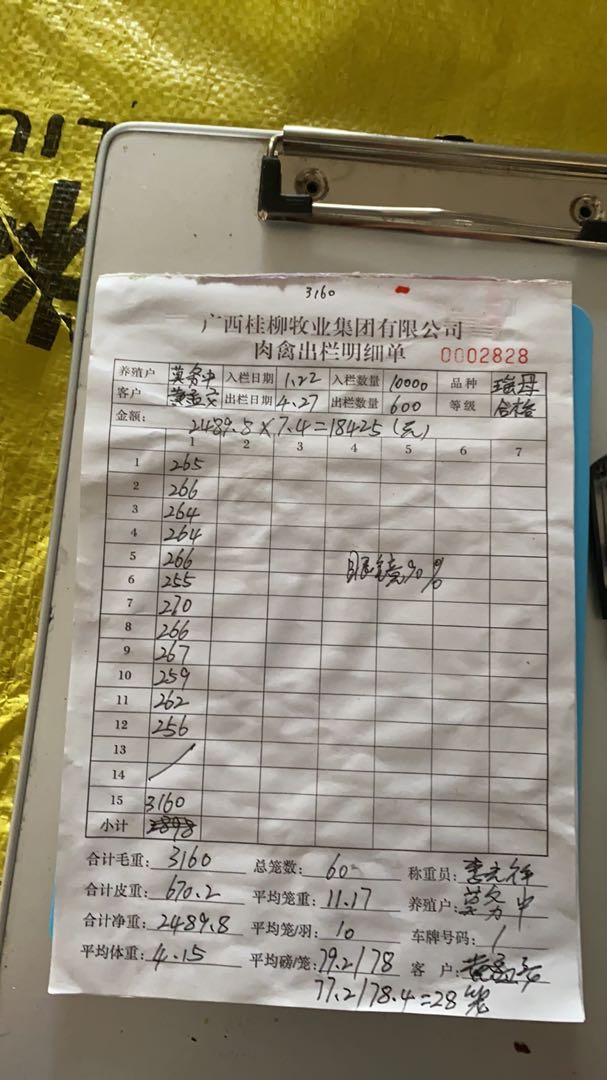 3160
广西桂柳牧业集团有限公司
肉禽出栏明细单 0002828
养殖户 入栏日期 1.22 入栏数量 10000 品种
客户 出栏日期 4.27 出栏数量 600 等级 合格
金额: 2489.8×7.4=18425(元)
1 2 3 4 5 6 7
1 265
2 266
3 264
4 264
5 266 眼镜90%
6 255
7 270
8 266
9 267
10 259
11 262
12 256
13
14
15 3160
小计
合计毛重: 3160 总笼数: 60 称重员:
合计皮重: 670.2 平均笼重: 11.17 养殖户:
合计净重: 2489.8 平均笼/羽: 10 车牌号码: /
平均体重: 4.15 平均磅/笼: 79.2/78 客户:
77.2/78.4=28笼